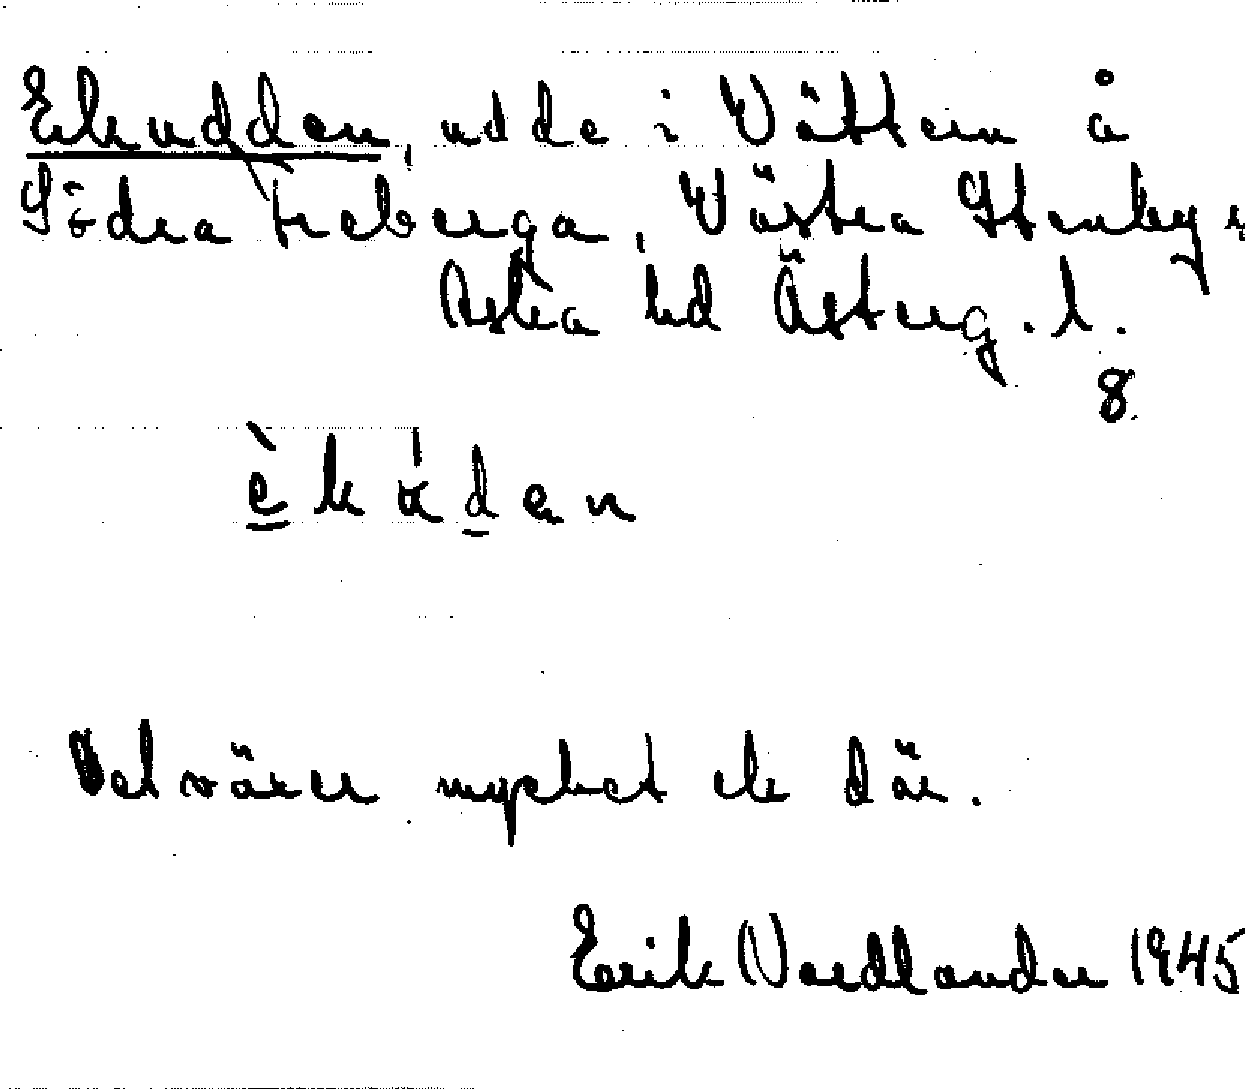 Ekudden, udde i Vättern å
Södra Freberga, Västra Stenby s
Aska hd Österg. l.
8
èkùden
Det växer mycket ek där.
Erik Nordlander 1945